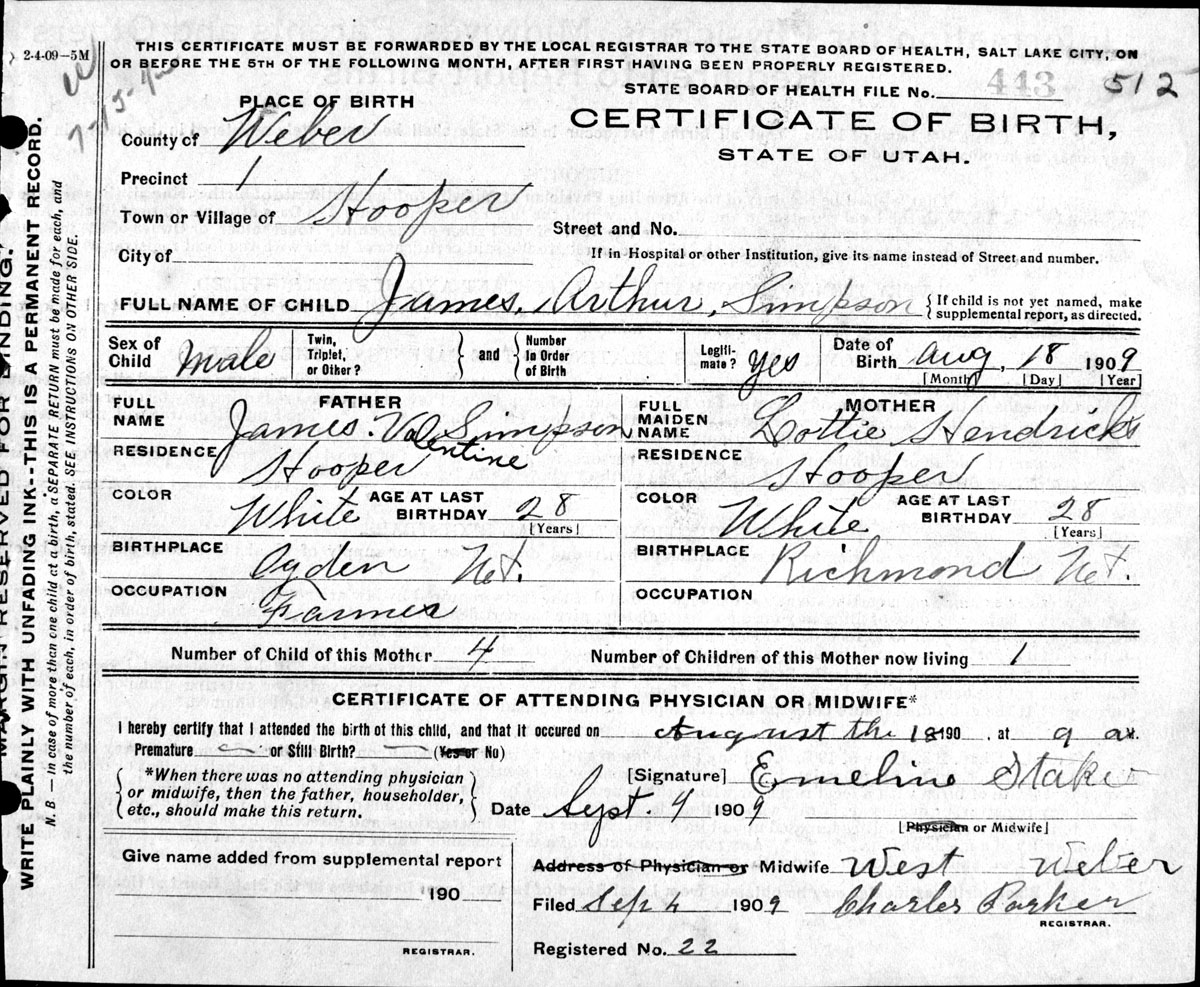 2-4-09-5M
THIS CERTIFICATE MUST BE FORWARDED BY THE LOCAL REGISTRAR TO THE STATE BOARD OF HEALTH, SALT LAKE CITY, ON
OR BEFORE THE 5TH OF THE FOLLOWING MONTH, AFTER FIRST HAVING BEEN PROPERLY REGISTERED.
STATE BOARD OF HEALTH FILE No. 443 512
PLACE OF BIRTH
CERTIFICATE OF BIRTH,
STATE OF UTAH.
County of Weber
Precinct 1
Town or Village of Hooper
Street and No.
City of
If in Hospital or other Institution, give its name instead of Street and number.
FULL NAME OF CHILD James, Arthur, Simpson {If child is not yet named, make
supplemental report, as directed.
Sex of Child Male Twin, Triplet, or Other? } and { Number In Order of Birth Legiti- mate? yes Date of Birth Aug, 18 1909
[Month] [Day] [Year]
FULL NAME FATHER James. Val Simpson
entine
RESIDENCE Hooper
COLOR White AGE AT LAST BIRTHDAY 28
[Years]
BIRTHPLACE Ogden Ut.
OCCUPATION Farmer
FULL MAIDEN NAME MOTHER Lottie Hendricks
RESIDENCE Hooper
COLOR White AGE AT LAST BIRTHDAY 28
[Years]
BIRTHPLACE Richmond Ut.
OCCUPATION
Number of Child of this Mother 4 Number of Children of this Mother now living 1
CERTIFICATE OF ATTENDING PHYSICIAN OR MIDWIFE*
I hereby certify that I attended the birth of this child, and that it occured on August the 18 190 , at 9 a M.
Premature or Still Birth? (Yes or No)
{*When there was no attending physician
or midwife, then the father, householder,
etc., should make this return.}
[Signature] Emeline Staker
Date Sept. 4 1909
[Physician or Midwife]
Give name added from supplemental report
190
REGISTRAR.
Address of Physician or Midwife West Weber
Filed Sep 4 1909 Charles Parker
REGISTRAR.
Registered No. 22
MARGIN RESERVED FOR BINDING.
WRITE PLAINLY WITH UNFADING INK--THIS IS A PERMANENT RECORD.
N. B.—In case of more than one child at a birth, a SEPARATE RETURN must be made for each, and
the number of each, in order of birth, stated. SEE INSTRUCTIONS ON OTHER SIDE.